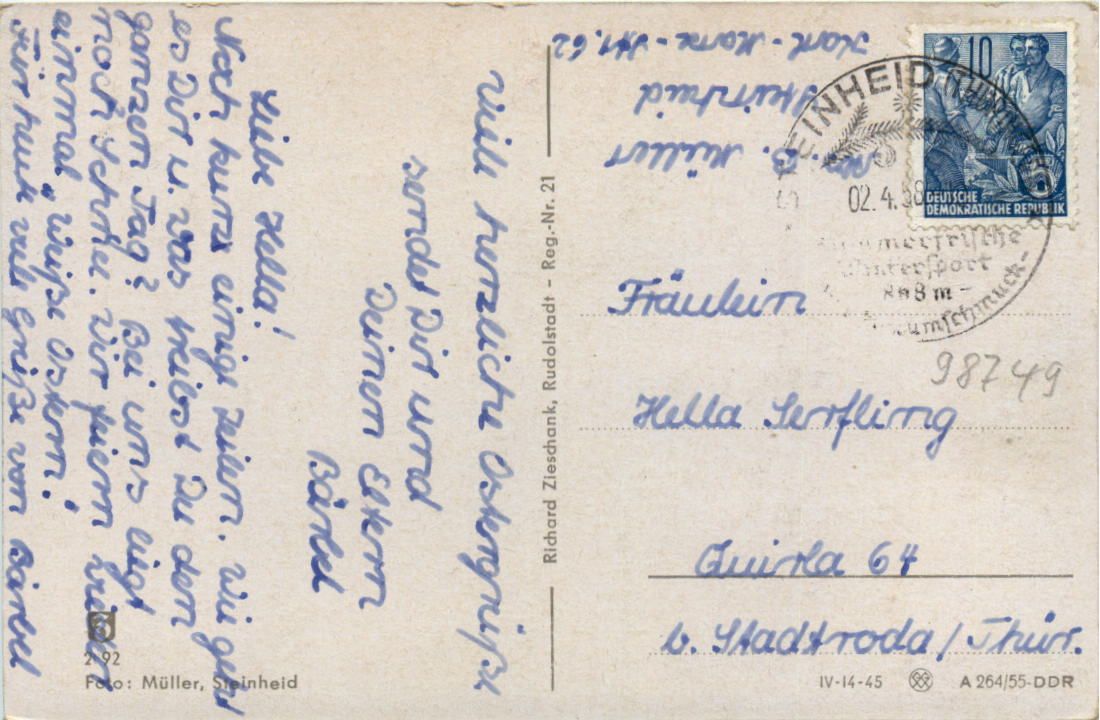 Viele herzliche Ostergrüße
sendet Dir und
Deinen Eltern
Bärbel
Liebe Hella!
Noch kurz einige Zeilen. Wie geht
es Dir u. was treibst Du den
ganzen Tag? Bei uns liegt
noch Schnee. Wir feiern wieder
einmal „Weiße Ostern!
Für heute viele Grüße von Bärbel
2 92
Foto: Müller, Steinheid
Richard Zieschank, Rudolstadt – Reg.-Nr. 21
B. Müller
Steinheid
Karl-Marx-Str. 62
10
DEUTSCHE
DEMOKRATISCHE REPUBLIK
STEINHEID (THÜR
02.4.58
Sommerfrische
Wintersport
868 m –
baumschmuck-
Fräulein
98749
Hella Serfling
Quirla 64
b. Stadtroda/Thür.
IV-14-45
A 264/55-DDR